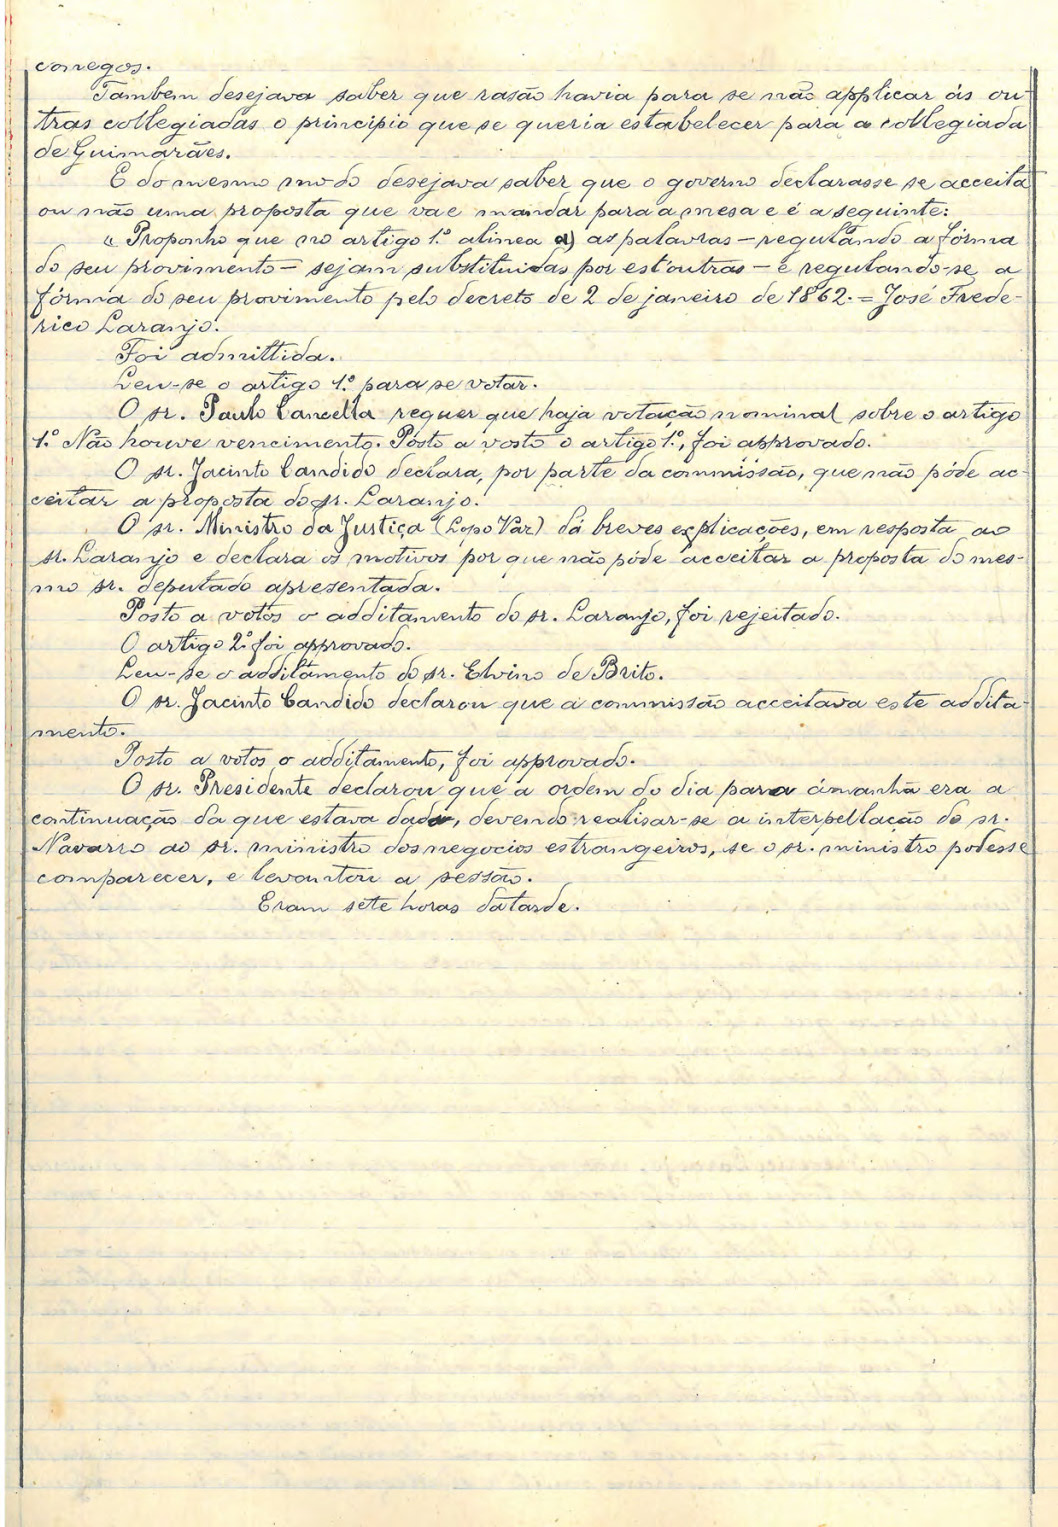 conegos.
Tambem desejava saber que rasão havia para se não applicar ás ou-
tras collegiadas o principio que se queria estabelecer para a collegiada
de Guimarães.
E do mesmo modo desejava saber que o governo declarasse se acceita
ou não uma proposta que vae mandar para a mesa e é a seguinte:
"Proponho que no artigo 1.º alinea a) as palavras - regulando a fórma
do seu provimento - sejam substituidas por est'outras - e regulando-se a
fórma do seu provimento pelo decreto de 2 de janeiro de 1862. = José Frede-
rico Laranjo.
Foi admittida.
Leu-se o artigo 1.º para se votar.
O sr. Paulo Cancella requer que haja votação nominal sobre o artigo
1.º Não houve vencimento. Posto a vosto o artigo 1.º, foi approvado.
O sr. Jacinto Candido declara, por parte da commissão, que não póde ac-
ceitar a proposta do sr. Laranjo.
O sr. Ministro da Justiça (Lopo Vaz) dá breves explicações, em resposta ao
sr. Laranjo e declara os motivos por que não póde acceitar a proposta do mes-
mo sr. deputado apresentada.
Posto a votos o additamento do sr. Laranjo, foi rejeitado.
O artigo 2.º foi approvado.
Leu-se o additamento do sr. Elvino de Brito.
O sr. Jacinto Candido declarou que a commissão acceitava este addita-
mento.
Posto a votos o additamento, foi approvado.
O sr. Presidente declarou que a ordem do dia para ámanhã era a
continuação da que estava dada, devendo realisar-se a interpellação do sr.
Navarro ao sr. ministro dos negocios estrangeiros, se o sr. ministro podesse
comparecer, e levantou a sessão.
Eram sete horas da tarde.